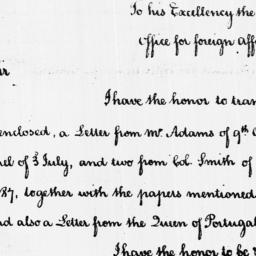 To his Excellency the
Office for foreign Aff
ir
I have the honor to tran
enclosed, a Letter from Mr. Adams of 9th
el of 3d July, and two from Col. Smith of
87, together with the papers mentioned
d also a Letter from the Queen of Portugal
I have the honor to be